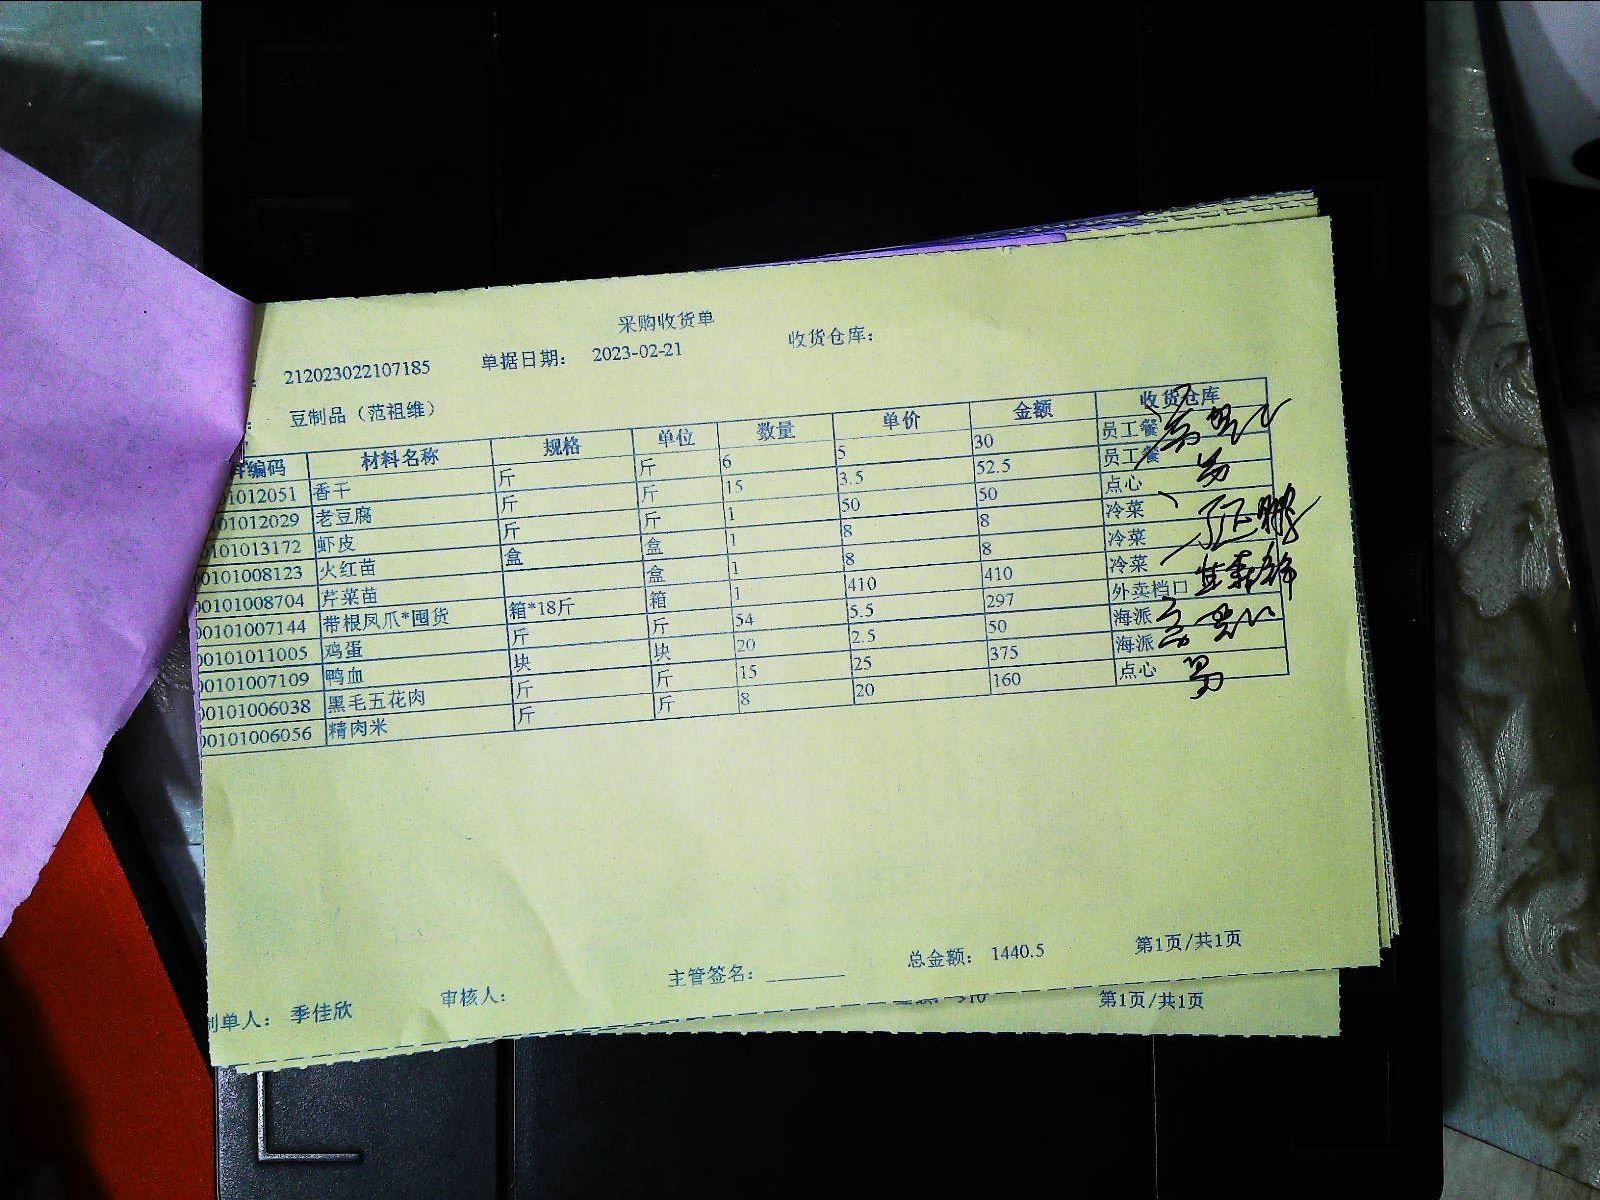 采购收货单
212023022107185 单据日期： 2023-02-21 收货仓库：
豆制品（范祖维）
编码 材料名称 规格 单位 数量 单价 金额 收货仓库
01012051 香干 斤 斤 6 5 30 员工餐
0101012029 老豆腐 斤 斤 15 3.5 52.5 员工餐
0101013172 虾皮 斤 斤 1 50 50 点心
00101008123 火红苗 盒 盒 1 8 8 冷菜
00101008704 芹菜苗 盒 1 8 8 冷菜
00101007144 带根凤爪*囤货 箱*18斤 箱 1 410 410 冷菜
00101011005 鸡蛋 斤 斤 54 5.5 297 外卖档口
00101007109 鸭血 块 块 20 2.5 50 海派
00101006038 黑毛五花肉 斤 斤 15 25 375 海派
00101006056 精肉米 斤 斤 8 20 160 点心
制单人： 季佳欣 审核人： 主管签名： 总金额： 1440.5 第1页/共1页
910 第1页/共1页